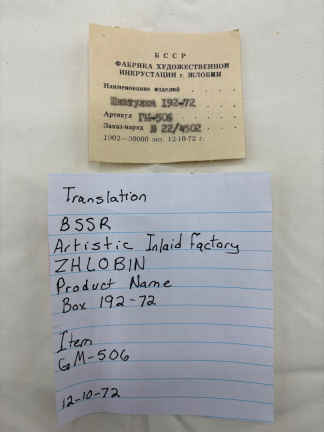 БССР
ФАБРИКА ХУДОЖЕСТВЕННОЙ
ИНКРУСТАЦИИ г. ЖЛОБИН
Наименование изделий . . . .
Шкатулка 192-72
Артикул ГМ-506 . . . .
Заказ-наряд № 22/4502 . .
1002—30000 экз. 12-10-72 г.
Translation
BSSR
Artistic Inlaid Factory
ZHLOBIN
Product Name
Box 192-72
Item
GM-506
12-10-72